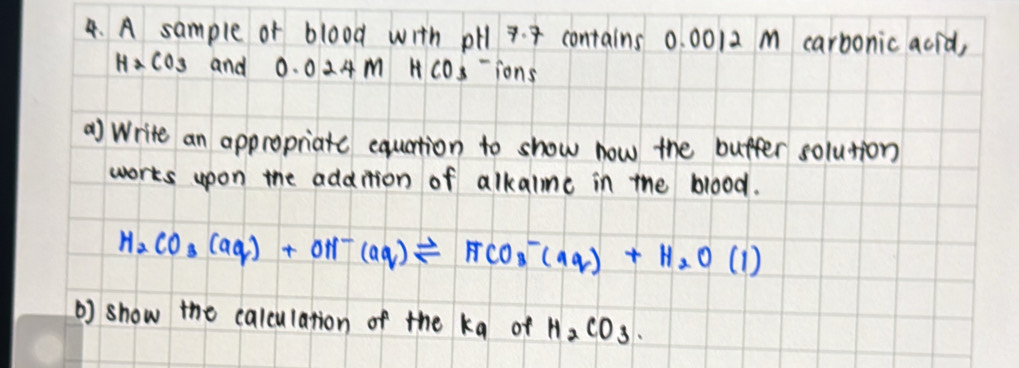 4. A sample of blood with pH 7.7 contains 0.0012 M carbonic acid,
H₂CO₃ and 0.024M HCO₃⁻ ions
a) Write an appropriate equation to show how the buffer solution
works upon the addition of alkaline in the blood.
H₂CO₃ (aq) + OH⁻ (aq) ⇌ HCO₃⁻ (aq) + H₂O (l)
b) show the calculation of the ka of H₂CO₃.